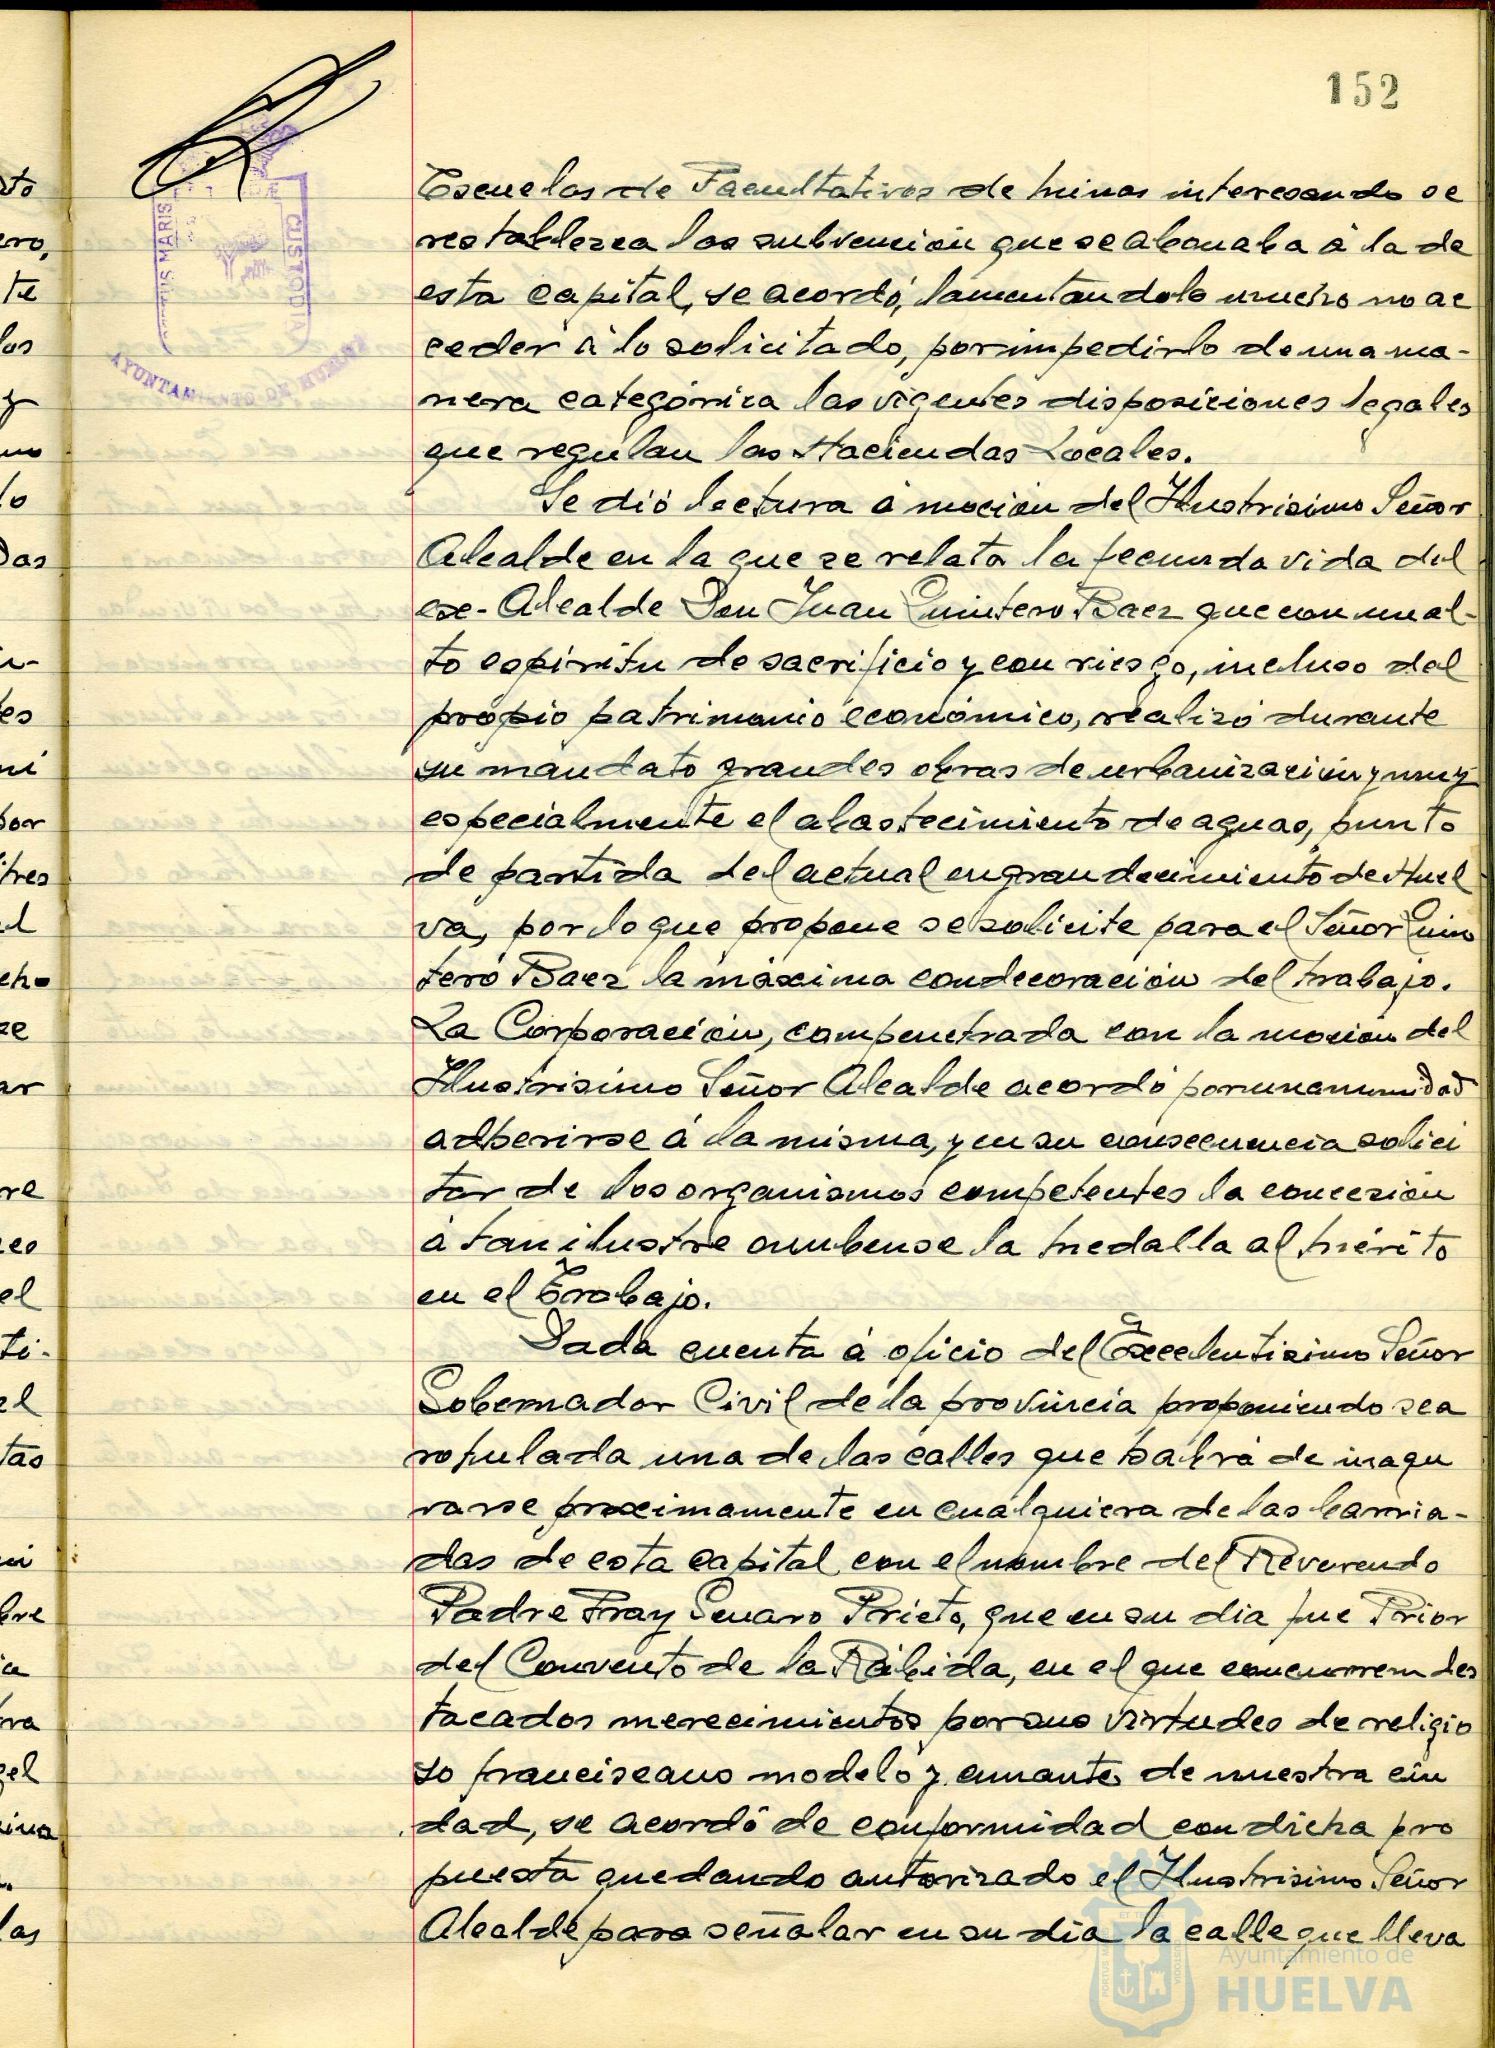 152
Escuelas de Facultativos de minas interesando se
restablezca las subvención que se abonaba á la de
esta capital, se acordó, lamentandolo mucho no ac
ceder á lo solicitado, por impedirlo de una ma-
nera categórica las vigentes disposiciones legales
que regulan las Haciendas Locales.
Se dió lectura á moción del Ilustrisimo Señor
Alcalde en la que se relata la fecunda vida del
ex-Alcalde Don Juan Quintero Baez que con un al-
to espiritu de sacrificio y con riesgo, incluso del
propio patrimonio económico, realizó durante
su mandato grandes obras de urbanización y muy
especialmente el abastecimiento de aguas, punto
de partida del actual engrandecimiento de Huel
va, por lo que propone se solicite para el Señor Quin
tero Baez la máxima condecoración del trabajo.
La Corporación, compenetrada con la moción del
Ilustrisimo Señor Alcalde acordó por unanimidad
adherirse á la misma, y en su consecuencia solici
tar de los organismos competentes la concesión
á tan ilustre onubense la medalla al mérito
en el Trabajo.
Dada cuenta á oficio del Excelentisimo Señor
Gobernador Civil de la provincia proponiendo sea
rotulada una de las calles que habrá de inagu
rarse proximamente en cualquiera de las barria-
das de esta capital con el nombre del Reverendo
Padre Fray Genaro Prieto, que en su dia fue Prior
del Convento de la Rábida, en el que concurren des
tacados merecimientos por sus virtudes de religio
so franciscano modelo y amante de nuestra ciu
dad, se acordó de conformidad con dicha pro
puesta quedando autorizado el Ilustrisimo Señor
Alcalde para señalar en su dia la calle que lleva
MARIS
CUSTODIA
AYUNTAMIENTO DE HUELVA
to
ero,
te
los
y
lo
Das
tes
ni
por
tres
ar
el
ti-
tas
bre
gel
las
Ayuntamiento de
HUELVA